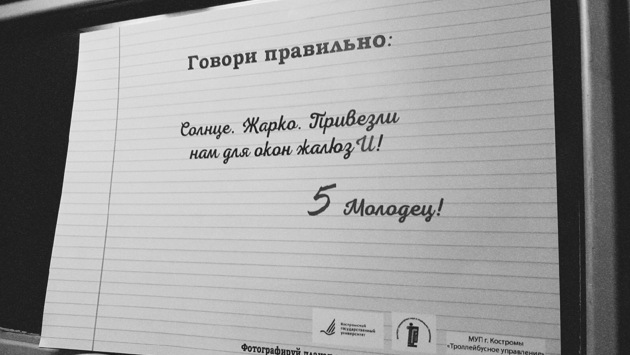 Говори правильно:
Солнце. Жарко. Привезли
нам для окон жалюзИ!
5 Молодец!
Костромской
государственный
университет
МУП г. Костромы
«Троллейбусное управление»
Фотографируй